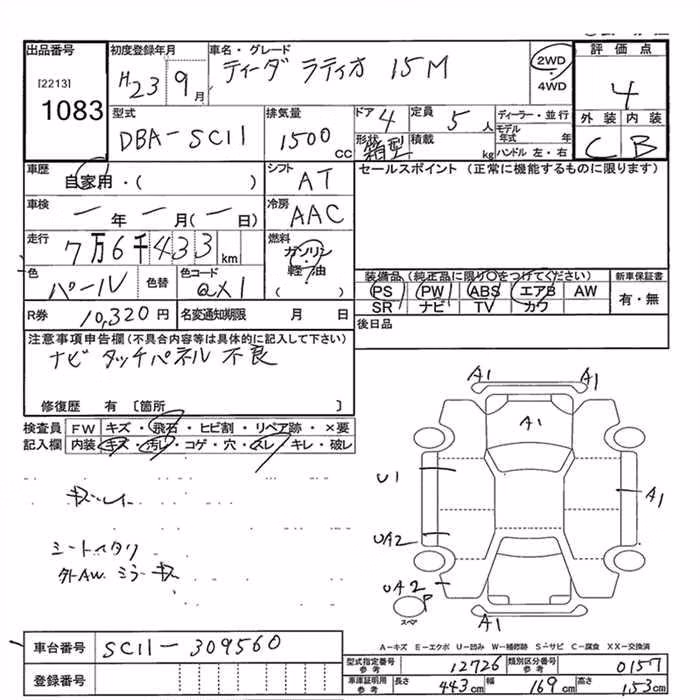 出品番号 初度登録年月 車名・グレード 評価点
[2213] 1083 H23 9月 ティーダ ラティオ 15M 2WD 4WD 4
型式 排気量 ドア 4 定員 5人 ディーラー・並行 外装 内装
DBA-SC11 1500cc 形状 箱型 積載 kg モデル年式 年 ハンドル 左・右 C B
車歴 自家用・( ) シフト AT セールスポイント (正常に機能するものに限ります)
車検 一年 一月(一日) 冷房 AAC
走行 7万6千433km 燃料 ガソリン・軽油 ( )
色 パール 色替 色コード QX1 装備品(純正品に限り○をつけてください) 新車保証書
PS PW ABS エアB AW 有・無
SR ナビ TV カワ
R券 10,320円 名変通知期限 月 日 後日品
注意事項申告欄(不具合内容等は具体的に記入して下さい)
ナビ タッチパネル 不良
修復歴 有 〔箇所 〕
検査員 FW キズ・飛石・ヒビ割・リペア跡・×要
記入欄 内装 キズ・汚レ・コゲ・穴・スレ・キレ・破レ
A1 A1
A1
U1 A1
UA2
シートヘタリ
外AW ミラーキズ
UA2 P
スペア
A1
A-キズ E-エクボ U-凹み W-補修跡 S-サビ C-腐食 XX-交換済
車台番号 SC11-309560 型式指定番号 参考 12726 類別区分番号 参考 0157
登録番号 車庫証明用 参考 長さ 443cm 幅 169cm 高さ 153cm